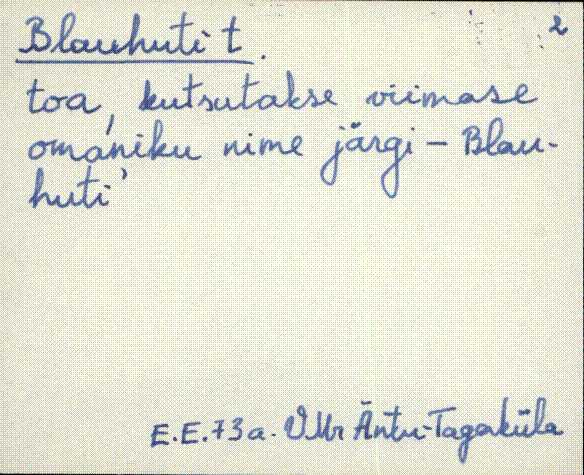 2
Blauhuti t.
toa, kutsutakse viimase
omaniku nime järgi – Blau-
huti'
E.E.73a. VMr Äntu-Tagaküla